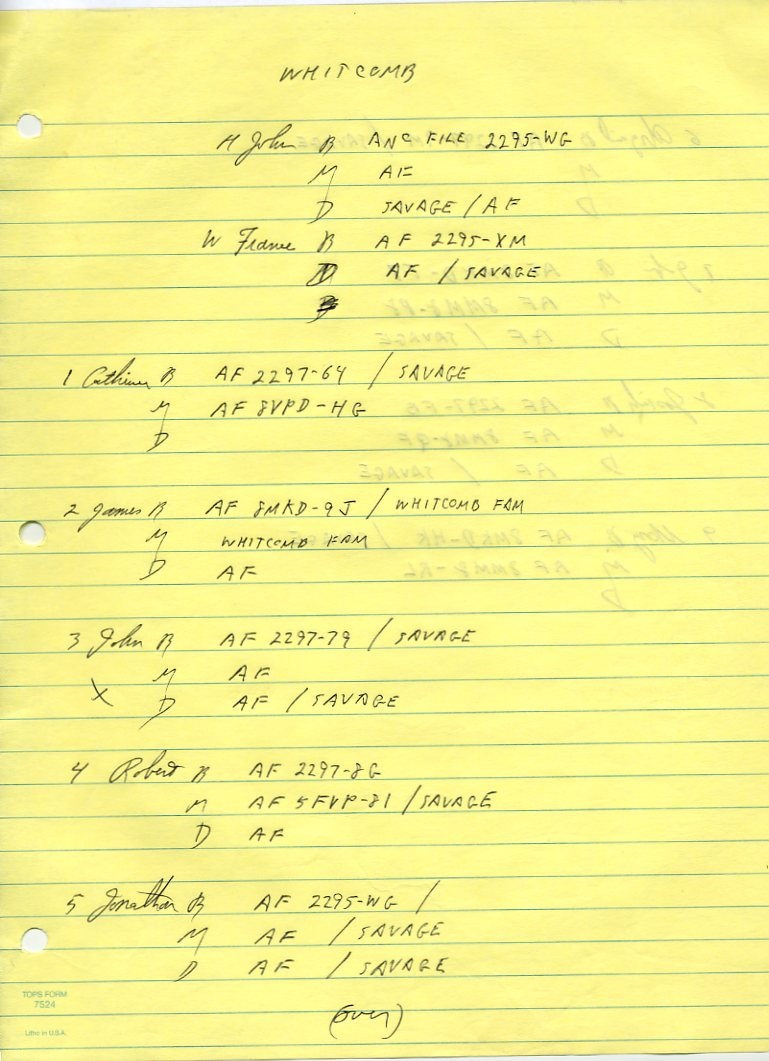 WHITCOMB
H John B ANC FILE 2295-WG
M AF
D SAVAGE / AF
W B AF 2295-XM
D AF / SAVAGE
1 B AF 2297-64 / SAVAGE
M AF 8VPD-HG
D
2 James B AF 8MKD-9J / WHITCOMB FAM
M WHITCOMB FAM
D AF
3 John B AF 2297-79 / SAVAGE
M AF
X D AF / SAVAGE
4 Robert B AF 2297-8G
M AF 5FVP-81 / SAVAGE
D AF
5 Jonathan B AF 2295-WG /
M AF / SAVAGE
D AF / SAVAGE
(over)
TOPS FORM
7524
Litho in U.S.A.